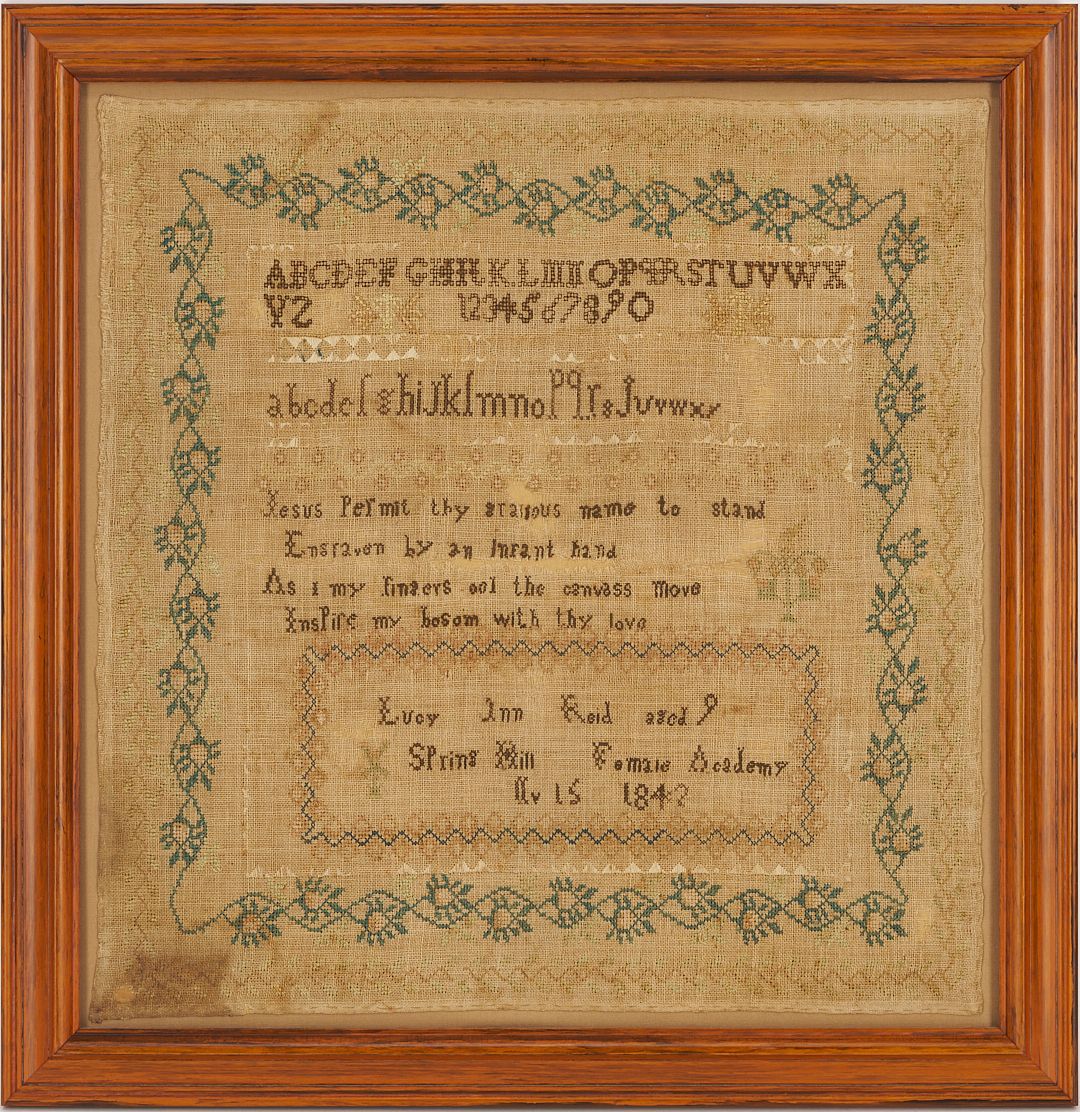 ABCDEFGHIKLMNOPQRSTUVWX
YZ 1234567890
abcdefghijklmnopqrsJuvwxy
Jesus Permit thy gracious name to stand
Engraven by an Infant hand
As i my fingers oer the canvass Move
Inspire my bosom with thy love
Lucy Ann Reid aged 9
Spring Hill Female Academy
Nv 15 1842